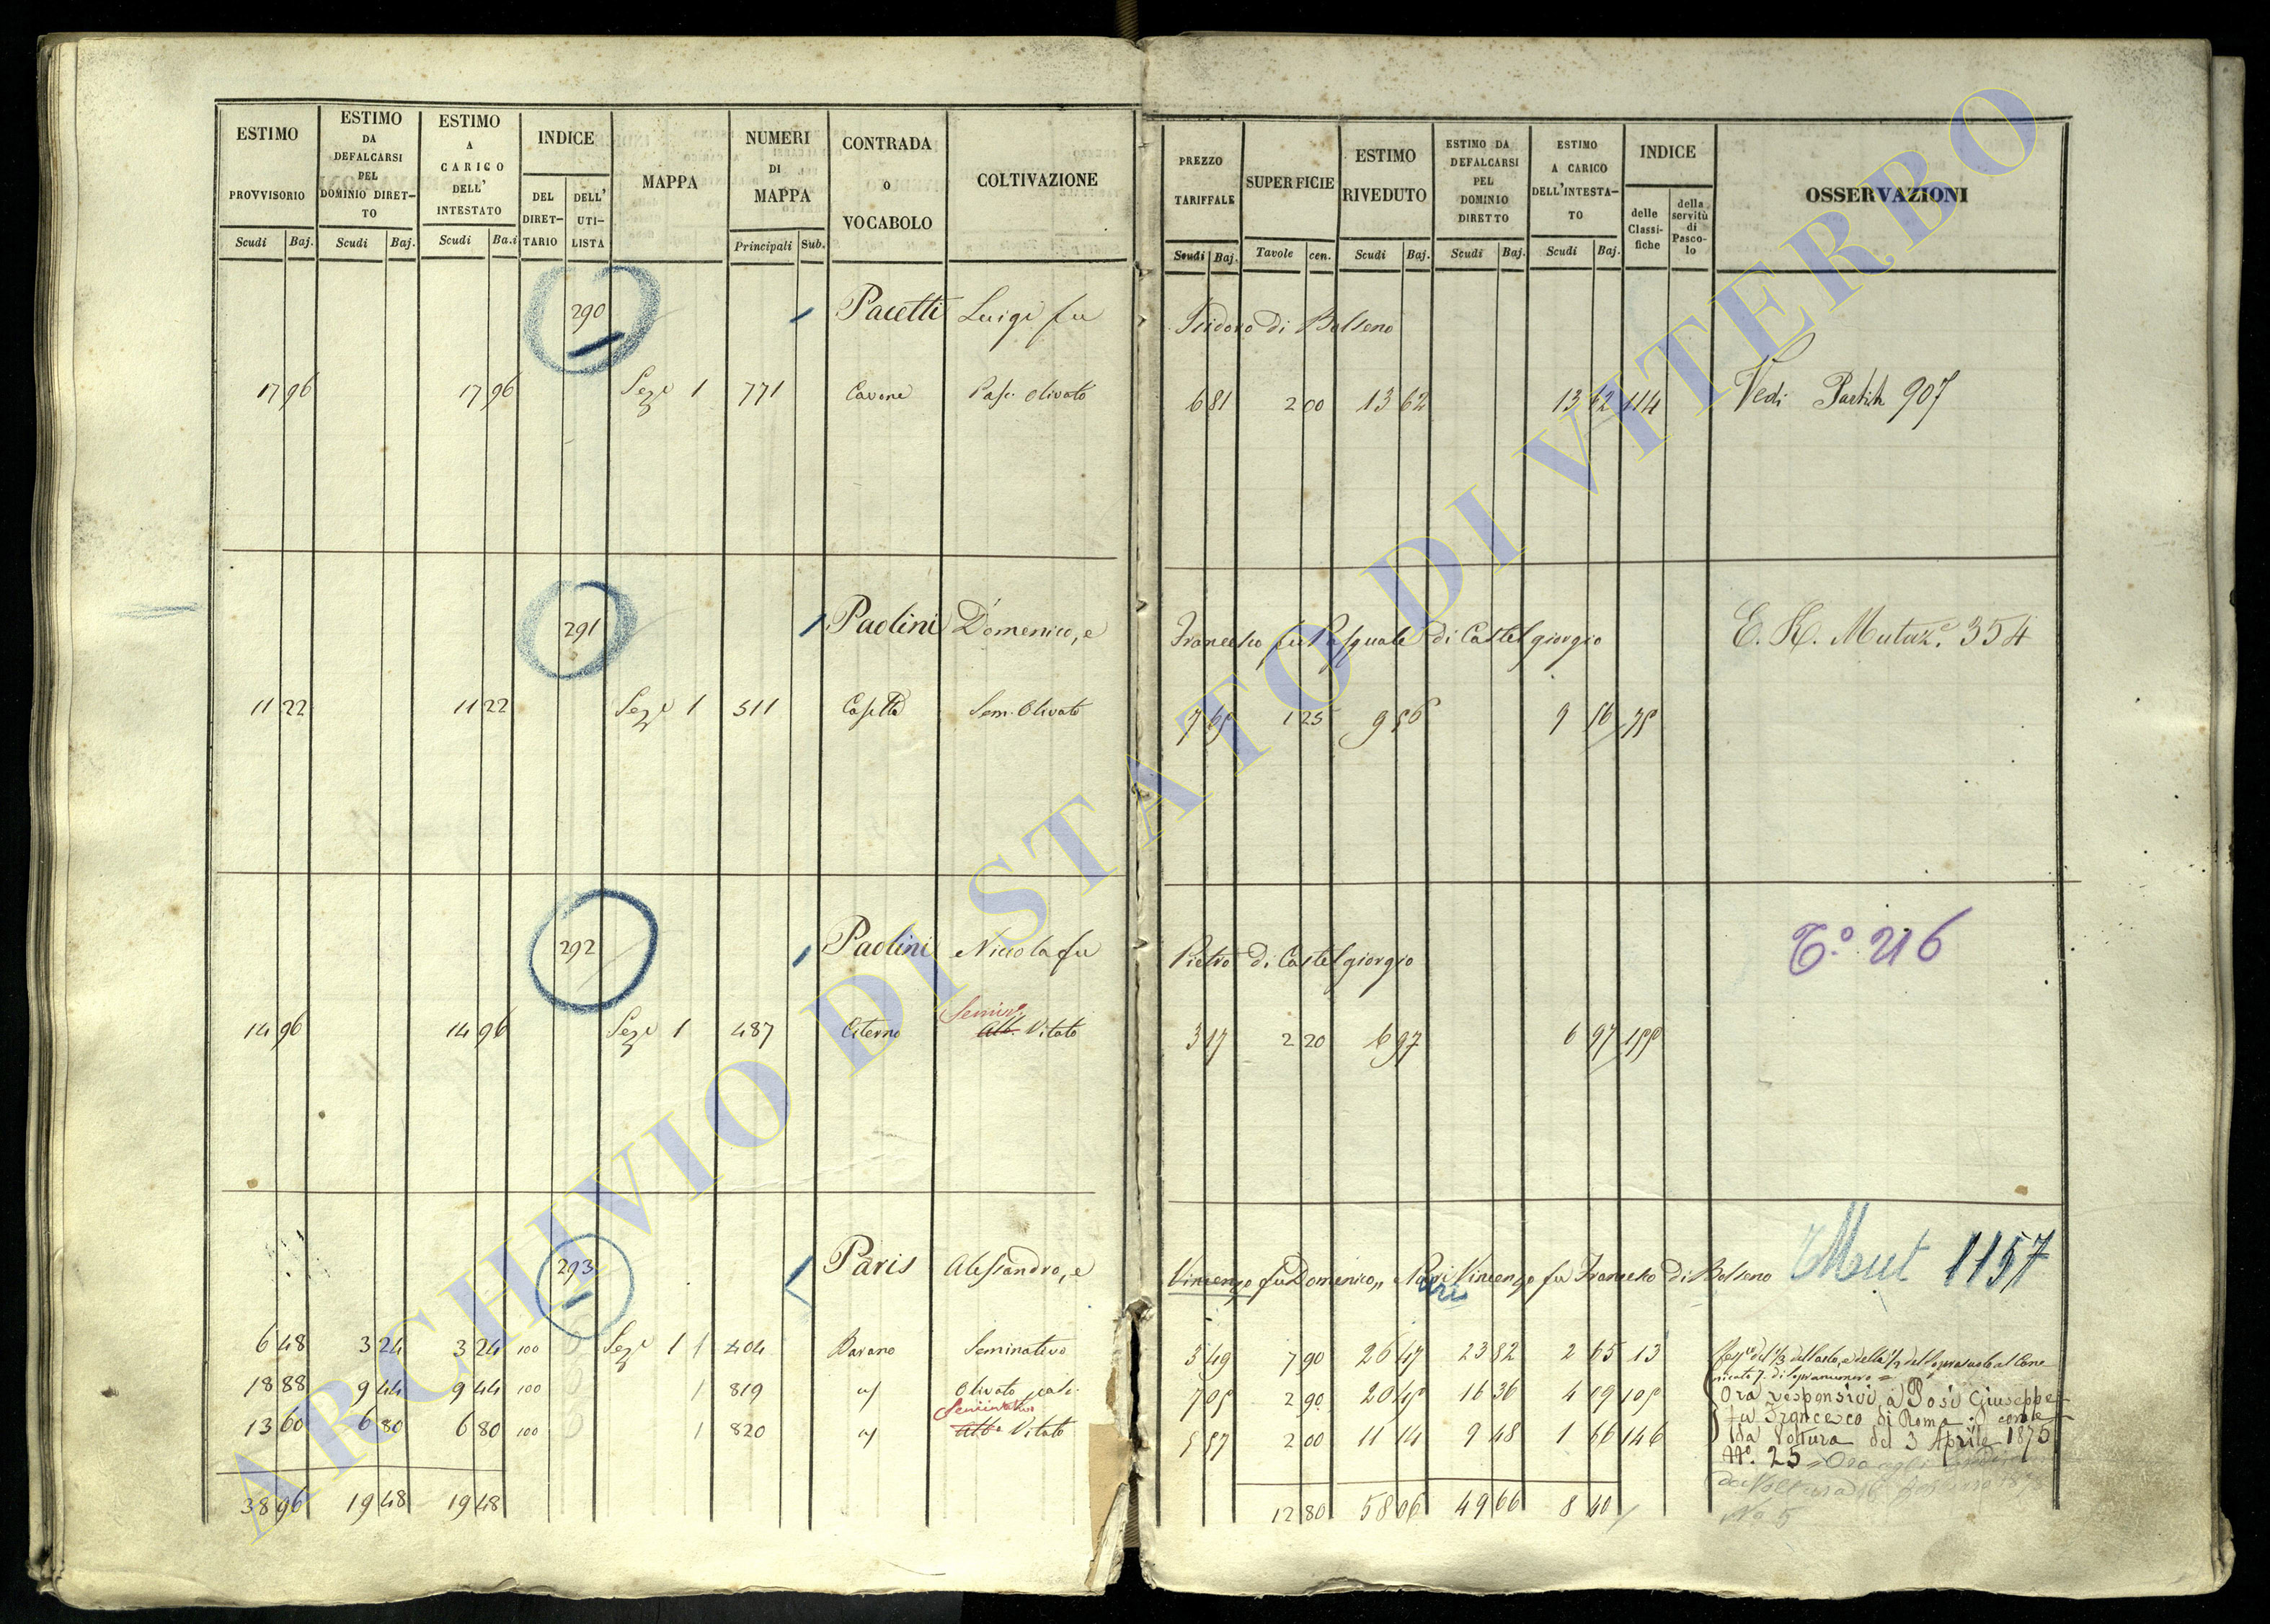 ESTIMO PROVVISORIO Scudi Baj.
ESTIMO DA DEFALCARSI PEL DOMINIO DIRETTO Scudi Baj.
ESTIMO A CARICO DELL' INTESTATO Scudi Ba.i
INDICE DEL DIRET-TARIO DELL' UTI-LISTA
MAPPA
NUMERI DI MAPPA Principali Sub.
CONTRADA O VOCABOLO
COLTIVAZIONE
PREZZO TARIFFALE Scudi Baj.
SUPERFICIE Tavole cen.
ESTIMO RIVEDUTO Scudi Baj.
ESTIMO DA DEFALCARSI PEL DOMINIO DIRETTO Scudi Baj.
ESTIMO A CARICO DELL'INTESTA-TO Scudi Baj.
INDICE delle Classi-fiche della servitù di Pasco-lo
OSSERVAZIONI
290 Pacetti Luigi fu Isidoro di Bolseno
17 96 17 96 Sez.e 1 771 Cavone Pasc. olivato 6 81 2 00 13 62 13 62 114 Vedi Partita 907
291 Paolini Domenico, e Francesco fu Pasquale di Castelgiorgio E. R. Mutaz.e 354
11 22 11 22 Sez.e 1 511 Casetta Sem. Olivato 7 65 1 25 9 56 9 56
292 Paolini Niccola fu Pietro di Castelgiorgio T.o 216
Semin.o
14 96 14 96 Sez.e 1 487 Citerno Alb. Vitato 3 17 2 20 6 97 6 97
293 Paris Alessandro, e Vincenzo fu Domenico, Vincenzo fu Francesco di Bolseno Mut 1157
6 48 3 24 3 24 100 Sez.e 1 1 404 Barano Seminativo 3 49 7 90 26 47 23 82 2 65 13
18 88 9 44 9 44 100 1 819 Olivato 2 90 16 36 4 09
Seminativo
13 60 6 80 6 80 100 1 820 Alb.o Vitato 2 00 11 14 9 48 1 66 146
Ora responsivi a Posi Giuseppe
fu Francesco di Roma come
da Voltura del 3 Aprile 1875
N.o 25
No 5
38 96 19 48 19 48 12 80 58 06 49 66 8 40
ARCHIVIO DI STATO DI VITERBO